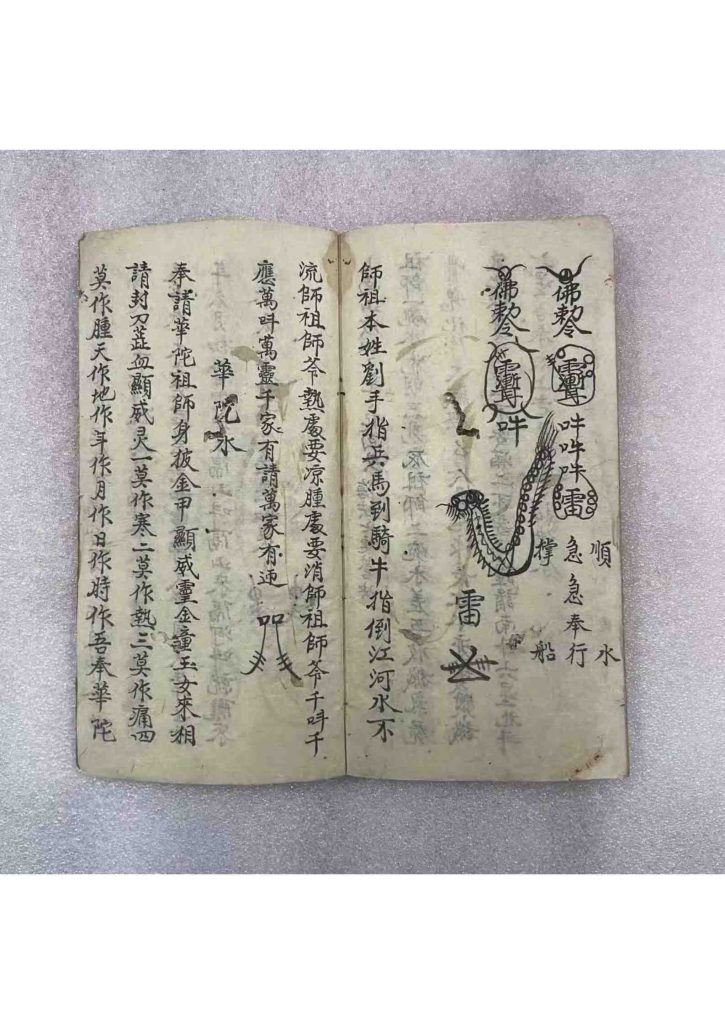 佛敕令
吽吽吽雷
順水
急急奉行
撑船
佛敕令
吽
雷
師祖本姓劉手指兵馬到騎牛指倒江河水不
流師祖師爷熱處要凉腫處要消師祖師爷千呌千
應萬呌萬靈千家有請萬家有迎
華陀水
奉請華陀祖師身披金甲顯威靈金童玉女來相
請封刀莊血顯威灵一莫作寒二莫作熱三莫作痛四
莫作腫天作地作年作月作日作時作吾奉華陀